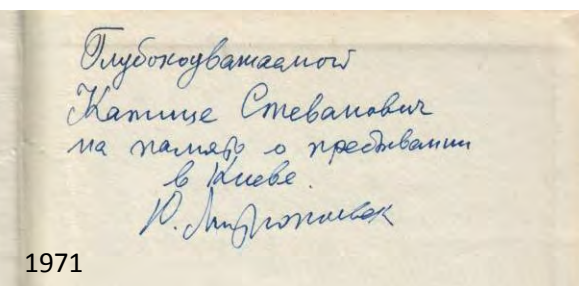 Глубокоуважаемой
Катице Стеванович
на память о пребывании
в Киеве.
Ю.
1971